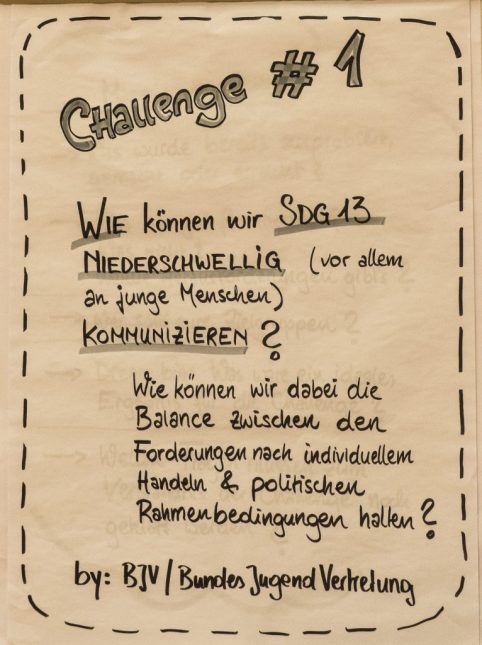 Challenge #1
WIE können wir SDG 13
NIEDERSCHWELLIG (vor allem
an junge Menschen)
KOMMUNIZIEREN?
Wie können wir dabei die
Balance zwischen den
Forderungen nach individuellem
Handeln & politischen
Rahmenbedingungen halten?
by: BJV/BundesJugendVertretung